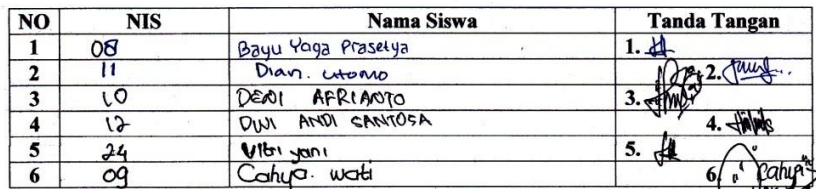 NO NIS Nama Siswa Tanda Tangan
1 08 Bayu Yoga Prasetya 1.
2 11 Dian. utomo 2.
3 10 DENI AFRIANTO 3.
4 12 DWI ANDI SANTOSA 4.
5 24 yani 5.
6 09 Cahya. wati 6. Cahya